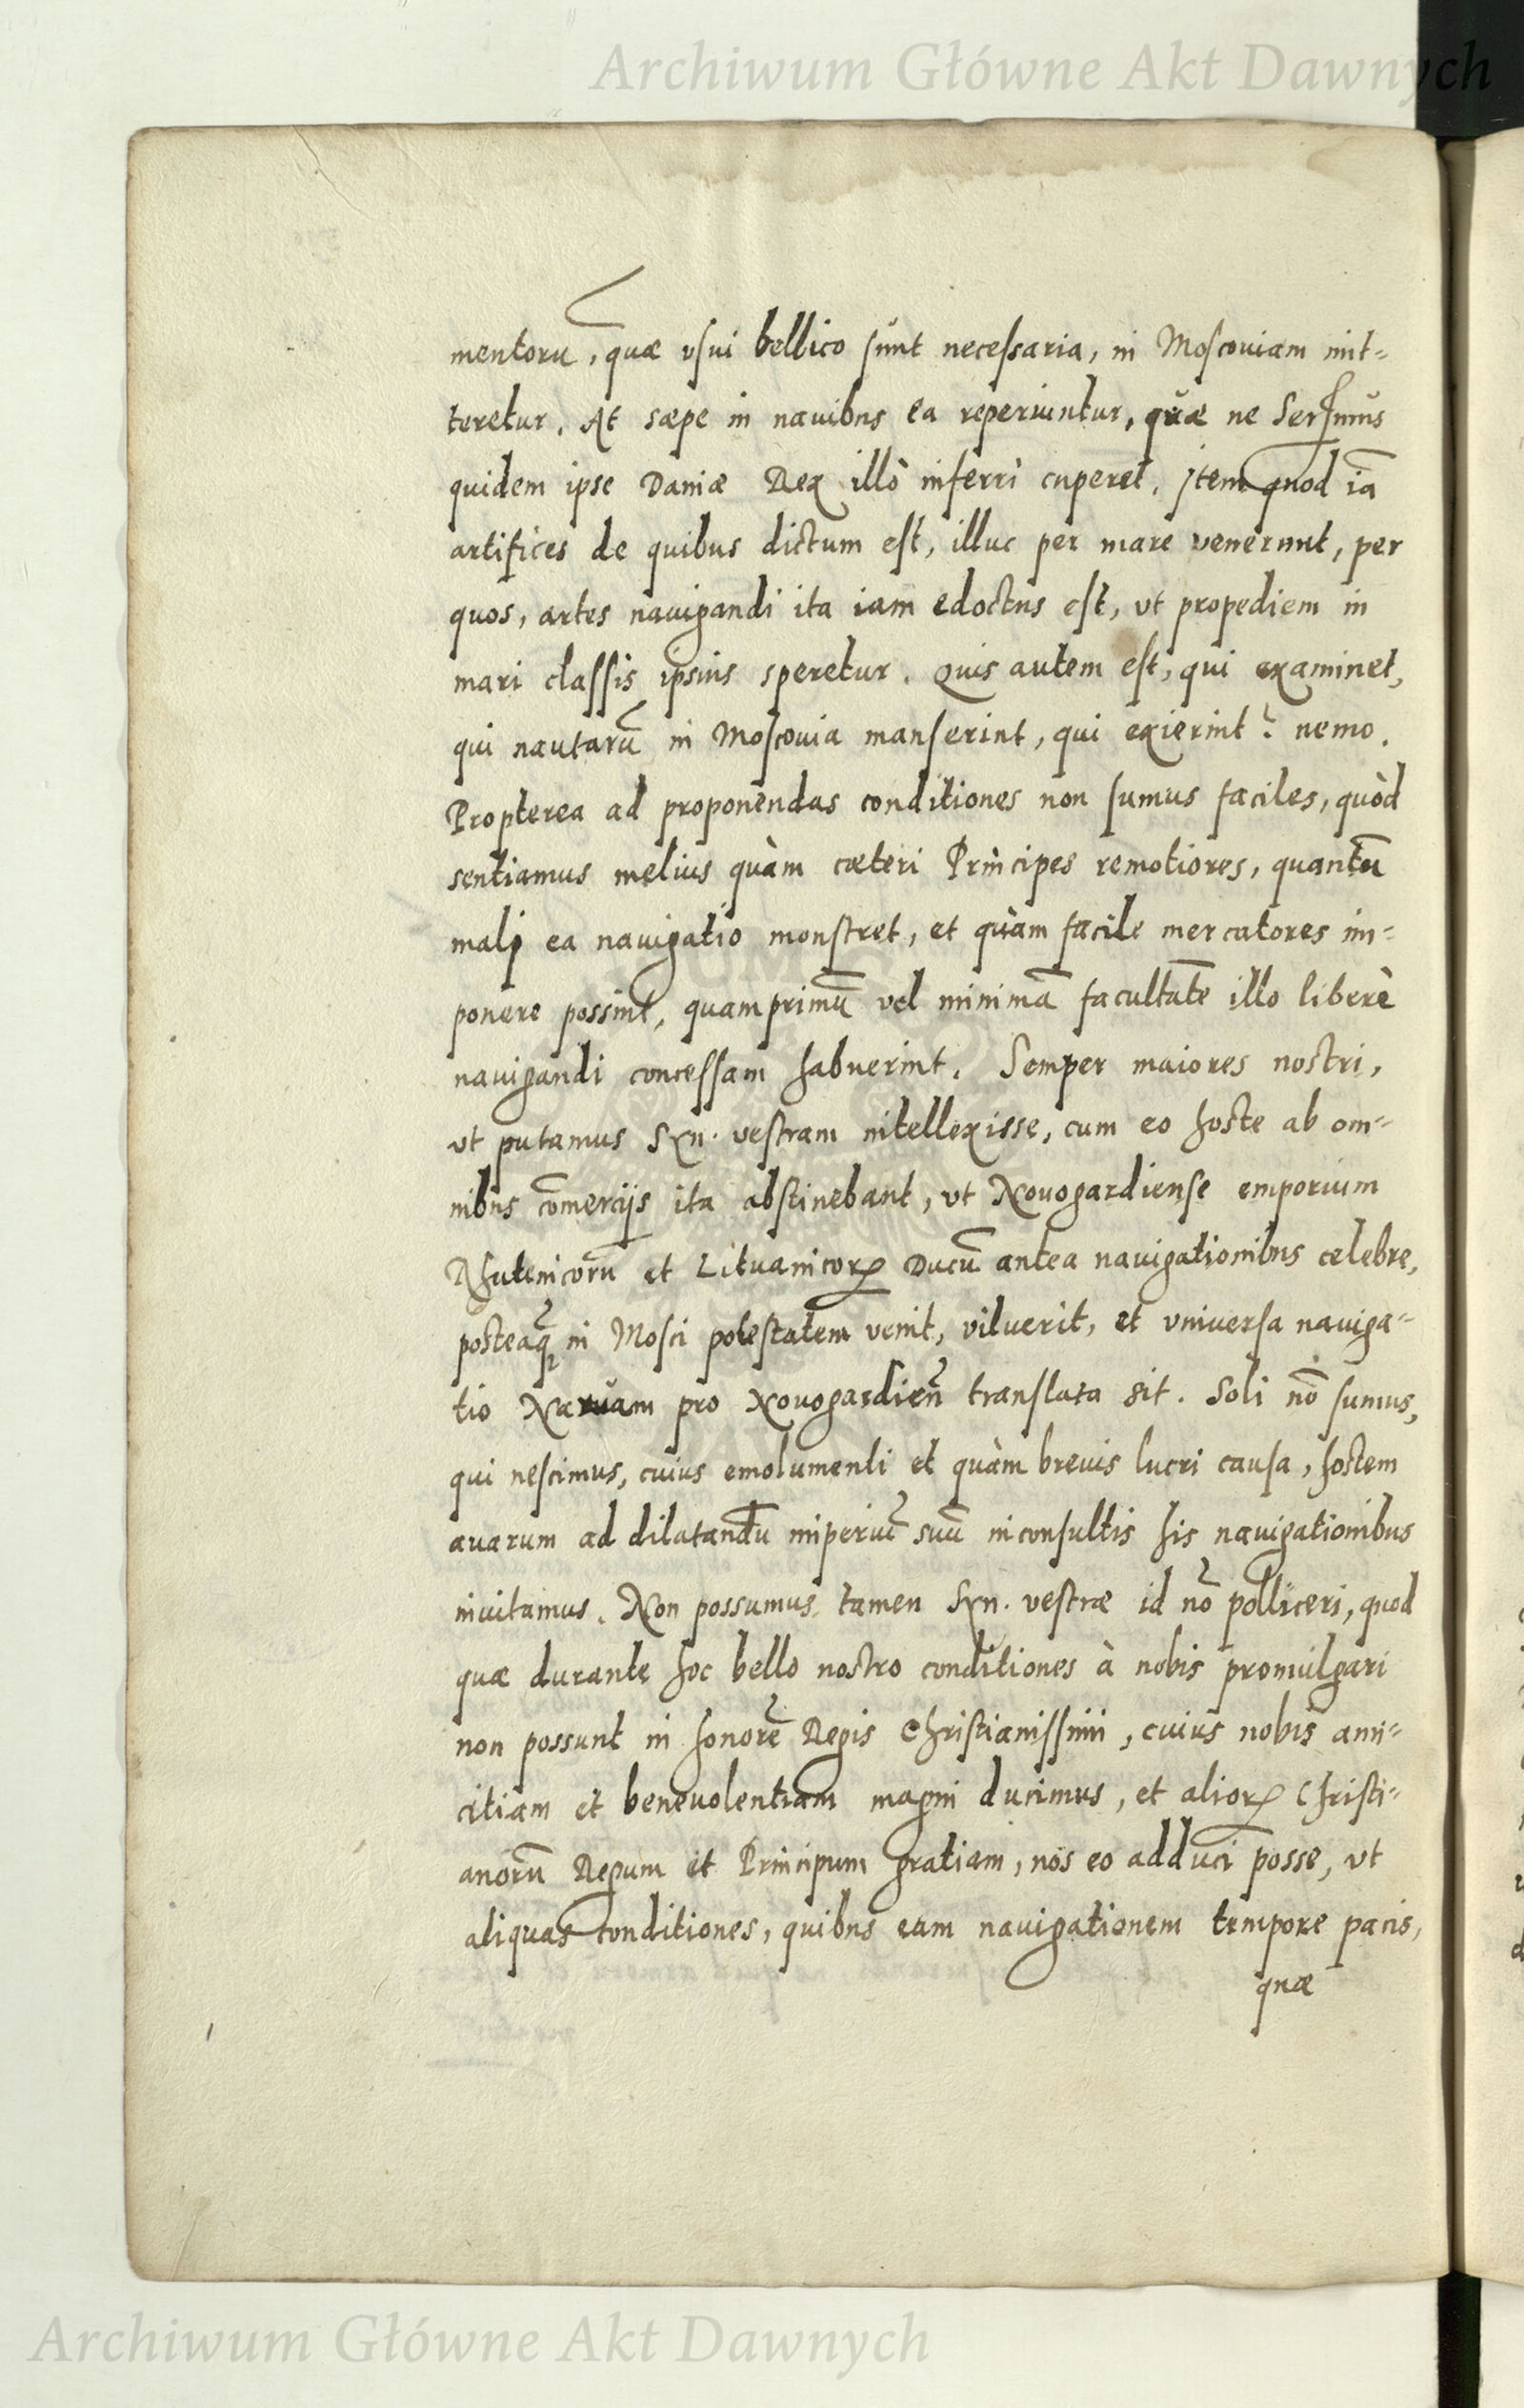 Archiwum Główne Akt Dawnych
mentorū, quæ vsui bellico sunt necessaria, in Moscouiam mit-
teretur. At sæpe in nauibus ea reperiuntur, quæ ne Ser̄imus
quidem ipse Daniæ Rex illò inferri cuperet. Item quod iā
artifices de quibus dictum est, illuc per mare venerunt, per
quos, artes nauigandi ita iam edoctus est, vt propediem in
mari classis ipsius speretur. Quis autem est, qui examinet,
qui nautarū in Moscouia manserint, qui exierint? nemo.
Propterea ad proponendas conditiones non sumus faciles, quòd
sentiamus melius quàm cæteri Principes remotiores, quantū
malj ea nauigatio monstret, et quàm facile mercatores im-
ponere possint, quamprimū vel minimā facultatē illo liberè
nauigandi concessam habuerint. Semper maiores nostri,
vt putamus Srn. vestram intellexisse, cum eo hoste ab om-
nibus cōmercijs ita abstinebant, vt Nouogardiense emporium
Rhutenicorū et Lituanicorꝝ Ducū antea nauigationibus celebre,
posteaq̄ in Mosci potestatem venit, viluerit, et vniuersa nauiga-
tio Naruam pro Nouogardien̄ translata sit. Soli nō sumus,
qui nescimus, cuius emolumenti et quàm breuis lucri causa, hostem
auarum ad dilatandū imperiū suū inconsultis his nauigationibus
inuitamus. Non possumus tamen Srn. vestræ id nō polliceri, quod
quæ durante hoc bello nostro conditiones à nobis promulgari
non possunt in honorē Regis Christianissimi, cuius nobis ami-
citiam et beneuolentiam magni ducimus, et aliorꝝ Christi-
anorū Regum et Principum gratiam, nos eo adduci posse, vt
aliquas conditiones, quibus eam nauigationem tempore pacis,
quæ
Archiwum Główne Akt Dawnych